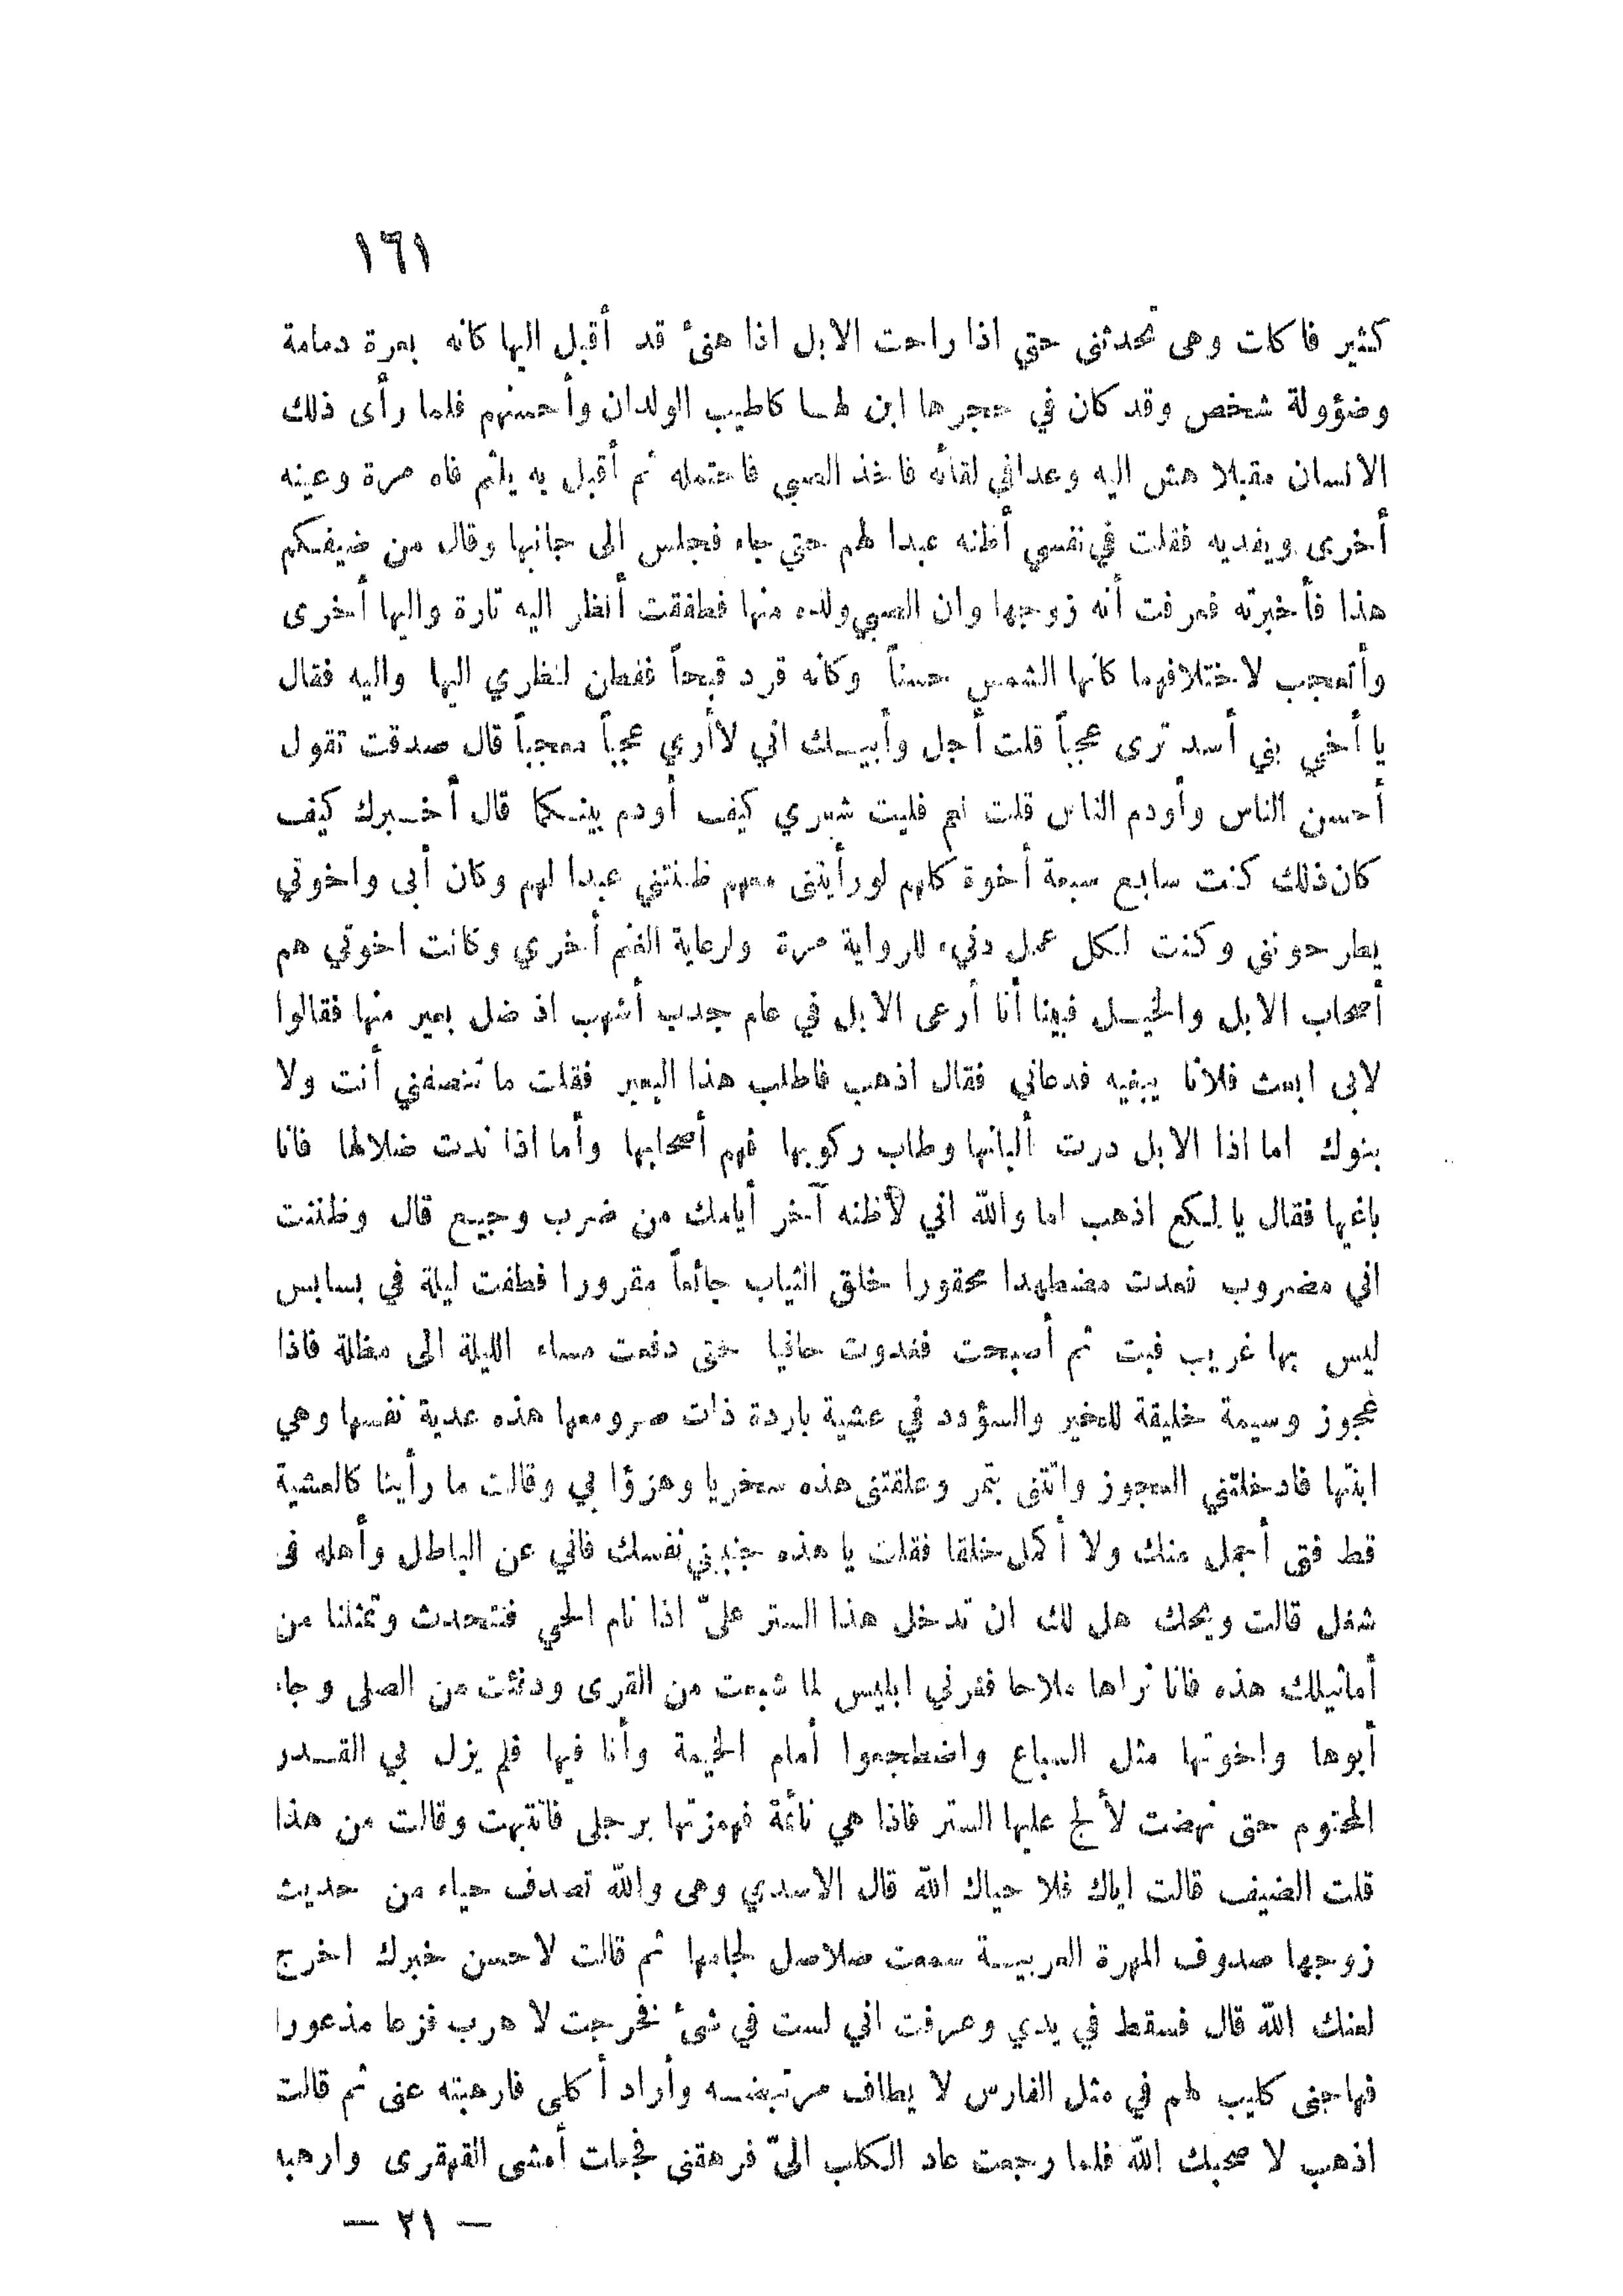 ١٦١
كثير فاكات وهى تحدثنى حتي اذا راحت الابل اذا هنئ قد أقبل اليها كانه بعرة دمامة
وضؤولة شخص وقد كان في حجرها ابن لهـا كاطيب الولدان وأحسنهم فلما رأى ذلك
الانسان مقبلا هش اليه وعدا في لقائه فاخذ الصبي فاحتمله ثم أقبل به يلثم فاه مرة وعينه
أخرى ويفديه فقلت في نفسي أظنه عبدا لهم حتي جاء فجلس الى جانبها وقال من ضيفكم
هذا فأخبرته فعرفت أنه زوجها وان الصبي ولده منها فطفقت أنظر اليه تارة واليها أخرى
وأتعجب لاختلافهما كانها الشمس حسناً وكانه قرد قبحاً ففطن لنظري اليها واليه فقال
يا أخي بني أسد ترى عجباً قلت أجل وأبيـك اني لاأري عجباً معجباً قال صدقت تقول
أحسن الناس وأودم الناس قلت نعم فليت شعري كيف أودم بينـكما قال أخـبرك كيف
كان ذلك كنت سابع سبعة أخوة كلهم لو رأيتنى معهم ظننتني عبدا لهم وكان أبى واخوتي
يطرحونني وكنت لكل عمل دنيء للرواية مرة ولرعاية الغنم أخري وكانت اخوتي هم
أصحاب الابل والخيـل فبينا أنا أرعى الابل في عام جدب أشهب اذ ضل بعير منها فقالوا
لابى ابعث فلانا يبغيه فدعاني فقال اذهب فاطلب هذا البعير فقلت ما تنصفني أنت ولا
بنوك اما اذا الابل درت ألبانها وطاب ركوبها فهم أصحابها وأما اذا ندت ضلالها فانا
باغيها فقال يا لكع اذهب اما والله اني لأظنه آخر أيامك من ضرب وجيع قال وظننت
اني مضروب فعدت مضطهدا محقورا خلق الثياب جائعاً مقرورا فطفت ليلة في بسابس
ليس بها غريب فبت ثم أصبحت فغدوت حافيا حتى دفعت مساء الليلة الى مظلة فاذا
عجوز وسيمة خليقة للخير والسؤدد في عشية باردة ذات صر ومعها هذه عدية نفسها وهي
ابنتها فادخلتني العجوز واتتنى بتمر وعلقتنى هذه سخريا وهزؤا بي وقالت ما رأينا كالعشية
قط فتى أجمل منك ولا أكمل خلقا فقلت يا هذه جنبيني نفسك فاني عن الباطل وأهله فى
شغل قالت ويحك هل لك ان تدخل هذا الستر علىّ اذا نام الحي فنتحدث وتمثلنا من
أماثيلك هذه فانا نراها ملاحا فغرني ابليس لما شبعت من القرى ودفئت من الصلى وجاء
أبوها واخوتها مثل السباع واضطجعوا أمام الخيمة وأنا فيها فلم يزل بي القـدر
المحتوم حتى نهضت لألج عليها الستر فاذا هي نائمة فهمزتها برجلى فانتبهت وقالت من هذا
قلت الضيف قالت اياك فلا حياك الله قال الاسدي وهى والله تصدف حياء من حديث
زوجها صدوف المهرة العربيـة سمعت صلاصل لجامها ثم قالت لاحسن خبرك اخرج
لعنك الله قال فسقط في يدي وعرفت اني لست في شئ فخرجت لاهرب فزعا مذعورا
فهاجنى كليب لهم في مثل الفارس لا يطاف مرتبضـه وأراد أكلى فارهبته عنى ثم قالت
اذهب لا صحبك الله فلما رجعت عاد الكلب الىّ فرهقنى فجعلت أمشى القهقرى وارهبه
— ٢١ —